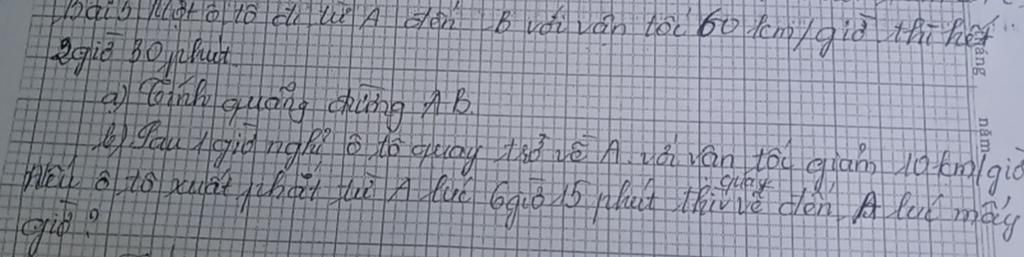 Bài 5 Một ô tô đi từ A đến B với vận tốc 60 km/giờ thì hết
2giờ 30 phút.
a) Tính quãng đường AB.
b) Sau 1 giờ nghỉ, ô tô quay trở về A với vận tốc giảm 10 km/giờ
Nếu ô tô xuất phát từ A lúc 6giờ 15 phút thì quay về đến A lúc mấy
giờ?
năm